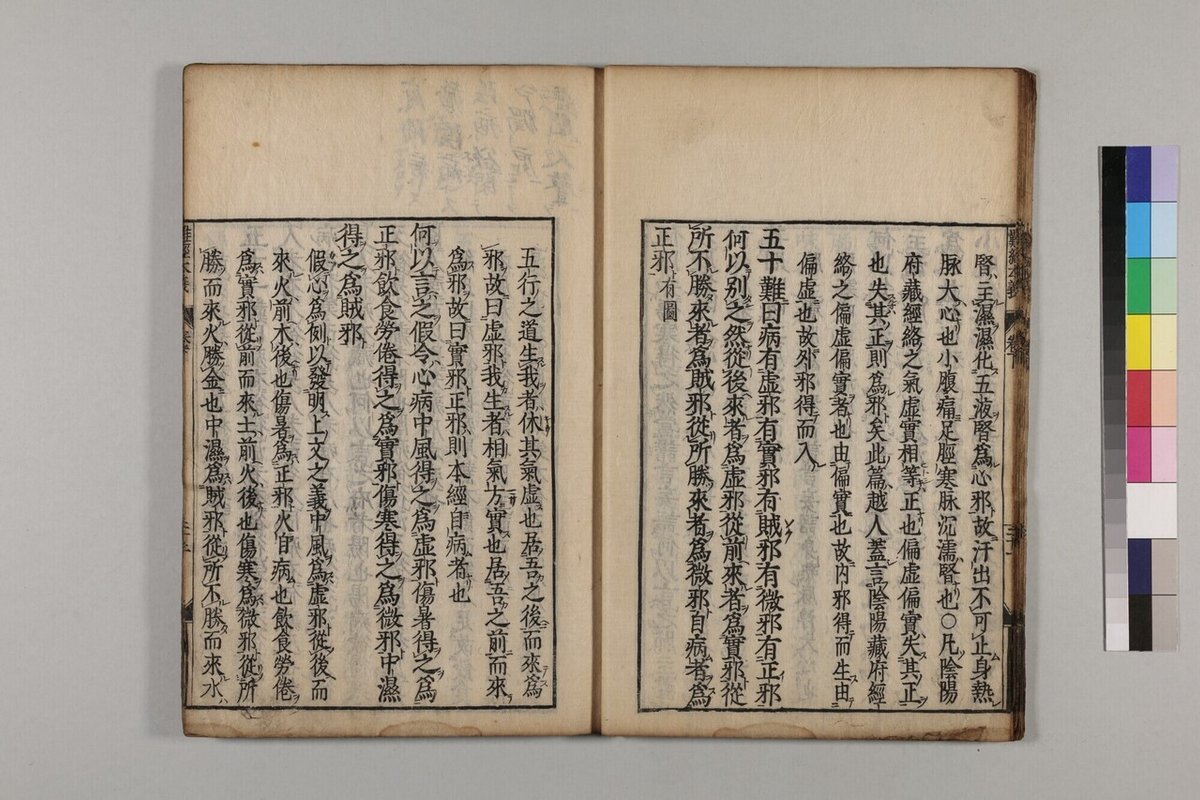 腎主濕濕化五液腎爲心邪故汗出不可止身熱
脉大心也小腹痛足脛寒脉沉濡腎也○凡陰陽
府藏經絡之氣虛實相等正也偏虛偏實失其正
也失其正則爲邪矣此篇越人蓋言陰陽藏府經
絡之偏虛偏實者也由偏實也故内邪得而生由
偏虛也故外邪得而入
五十難曰病有虛邪有實邪有賊邪有微邪有正邪
何以別之然從後來者爲虛邪從前來者爲實邪從
所不勝來者爲賊邪從所勝來者爲微邪自病者爲
正邪有圖
五行之道生我者休其氣虛也居吾之後而來爲
邪故曰虛邪我生者相氣方實也居吾之前而來
爲邪故曰實邪正邪則本經自病者也
何以言之假令心病中風得之爲虛邪傷暑得之爲
正邪飲食勞倦得之爲實邪傷寒得之爲微邪中濕
得之爲賊邪
假心爲例以發明上文之義中風爲虛邪從後而
來火前木後也傷暑爲正邪火自病也飲食勞倦
爲實邪從前而來土前火後也傷寒爲微邪從所
勝而來火勝金也中濕爲賊邪從所不勝而來水